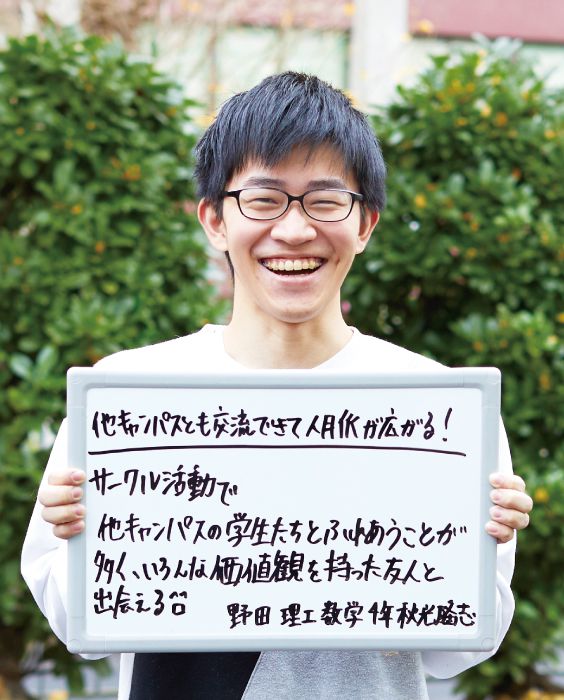 他キャンパスとも交流できて人脈が広がる!
サークル活動で
他キャンパスの学生たちとふれあうことが
多く、いろんな価値観を持った友人と
出会える
野田 理工 数学 4年 秋光